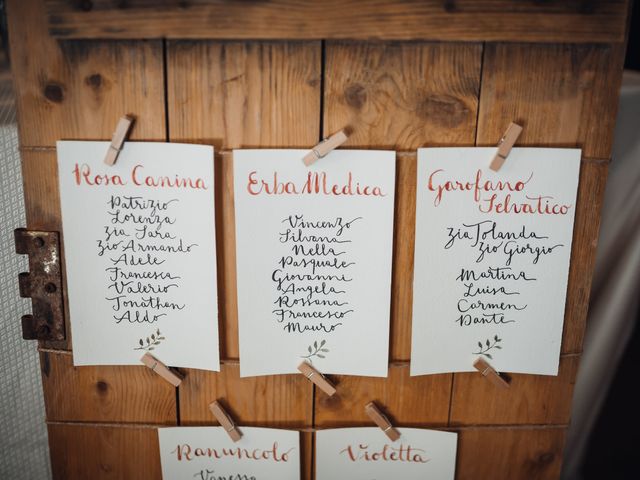 Rosa Canina
Patrizio
Lorenza
Zia Sara
zio Armando
Adele
Francesca
Valerio
Jonathan
Aldo
Erba Medica
Vincenzo
Silvana
Nella
Pasquale
Giovanni
Angela
Rossana
Francesco
Mauro
Garofano
Selvatico
zia Jolanda
Zio Giorgio
Martina
Luisa
Carmen
Dante
Ranuncolo
Vanessa
Violetta